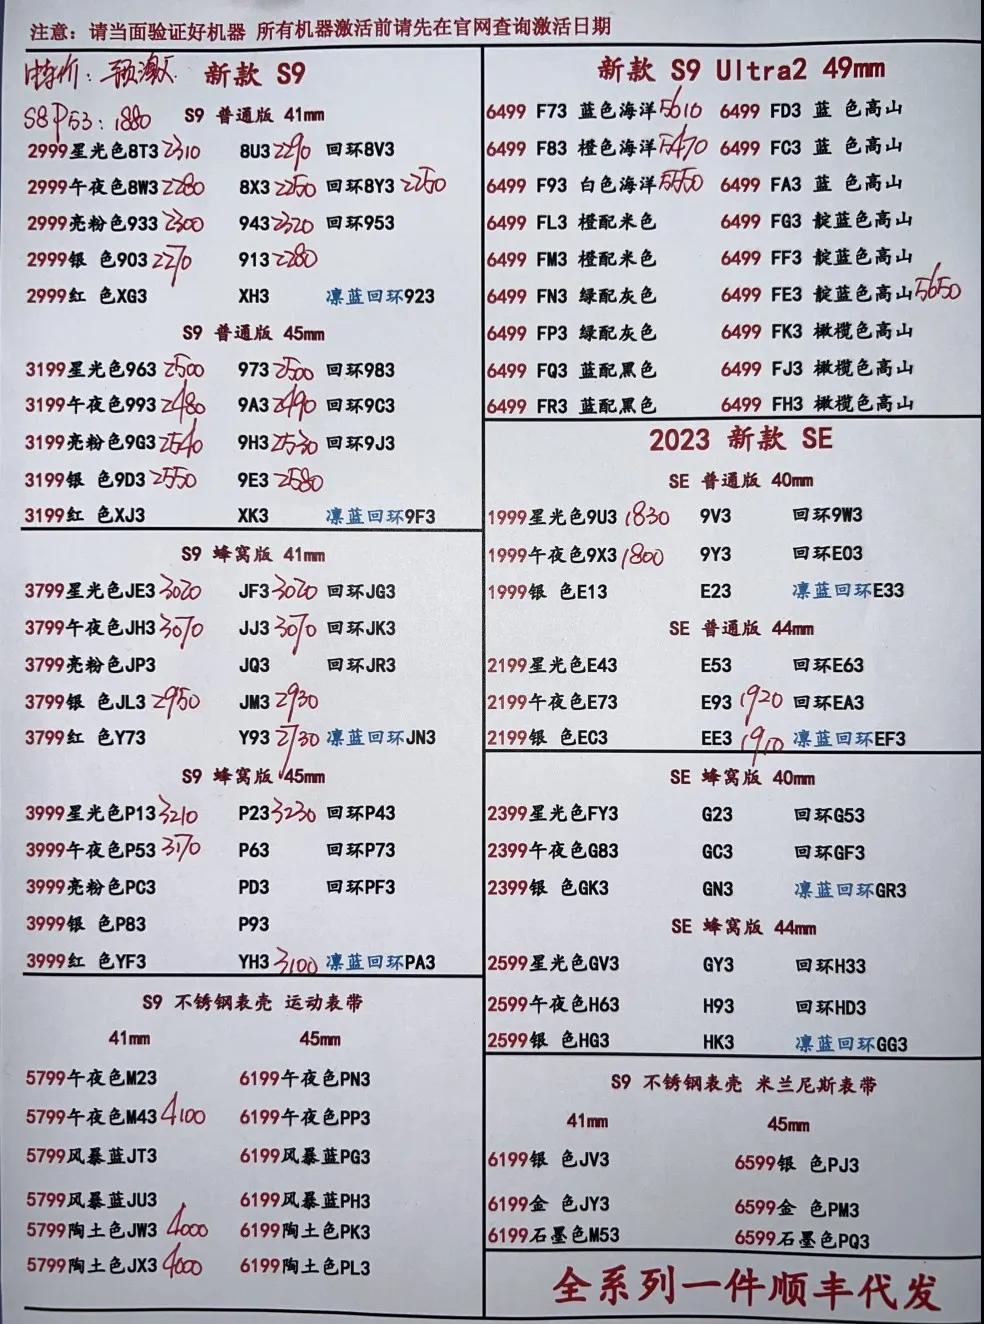 注意：请当面验证好机器 所有机器激活前请先在官网查询激活日期
特价：预激 新款 S9
S8 P53：1880 S9 普通版 41mm
2999星光色8T3 2310 8U3 2290 回环8V3
2999午夜色8W3 2280 8X3 2250 回环8Y3 2250
2999亮粉色933 2300 943 2320 回环953
2999银 色903 2270 913 2280
2999红 色XG3 XH3 凛蓝回环923
S9 普通版 45mm
3199星光色963 2500 973 2500 回环983
3199午夜色993 2480 9A3 2490 回环9C3
3199亮粉色9G3 2540 9H3 2530 回环9J3
3199银 色9D3 2550 9E3 2580
3199红 色XJ3 XK3 凛蓝回环9F3
S9 蜂窝版 41mm
3799星光色JE3 3020 JF3 3020 回环JG3
3799午夜色JH3 3070 JJ3 3070 回环JK3
3799亮粉色JP3 JQ3 回环JR3
3799银 色JL3 2950 JM3 2930
3799红 色Y73 Y93 2730 凛蓝回环JN3
S9 蜂窝版 45mm
3999星光色P13 3210 P23 3230 回环P43
3999午夜色P53 3170 P63 回环P73
3999亮粉色PC3 PD3 回环PF3
3999银 色P83 P93
3999红 色YF3 YH3 3100 凛蓝回环PA3
S9 不锈钢表壳 运动表带
41mm 45mm
5799午夜色M23 6199午夜色PN3
5799午夜色M43 4100 6199午夜色PP3
5799风暴蓝JT3 6199风暴蓝PG3
5799风暴蓝JU3 6199风暴蓝PH3
5799陶土色JW3 4000 6199陶土色PK3
5799陶土色JX3 4000 6199陶土色PL3
新款 S9 Ultra2 49mm
6499 F73 蓝色海洋 5610 6499 FD3 蓝 色高山
6499 F83 橙色海洋 5470 6499 FC3 蓝 色高山
6499 F93 白色海洋 5550 6499 FA3 蓝 色高山
6499 FL3 橙配米色 6499 FG3 靛蓝色高山
6499 FM3 橙配米色 6499 FF3 靛蓝色高山
6499 FN3 绿配灰色 6499 FE3 靛蓝色高山 5650
6499 FP3 绿配灰色 6499 FK3 橄榄色高山
6499 FQ3 蓝配黑色 6499 FJ3 橄榄色高山
6499 FR3 蓝配黑色 6499 FH3 橄榄色高山
2023 新款 SE
SE 普通版 40mm
1999星光色9U3 1830 9V3 回环9W3
1999午夜色9X3 1800 9Y3 回环E03
1999银 色E13 E23 凛蓝回环E33
SE 普通版 44mm
2199星光色E43 E53 回环E63
2199午夜色E73 E93 1920 回环EA3
2199银 色EC3 EE3 1910 凛蓝回环EF3
SE 蜂窝版 40mm
2399星光色FY3 G23 回环G53
2399午夜色G83 GC3 回环GF3
2399银 色GK3 GN3 凛蓝回环GR3
SE 蜂窝版 44mm
2599星光色GV3 GY3 回环H33
2599午夜色H63 H93 回环HD3
2599银 色HG3 HK3 凛蓝回环GG3
S9 不锈钢表壳 米兰尼斯表带
41mm 45mm
6199银 色JV3 6599银 色PJ3
6199金 色JY3 6599金 色PM3
6199石墨色M53 6599石墨色PQ3
全系列一件顺丰代发